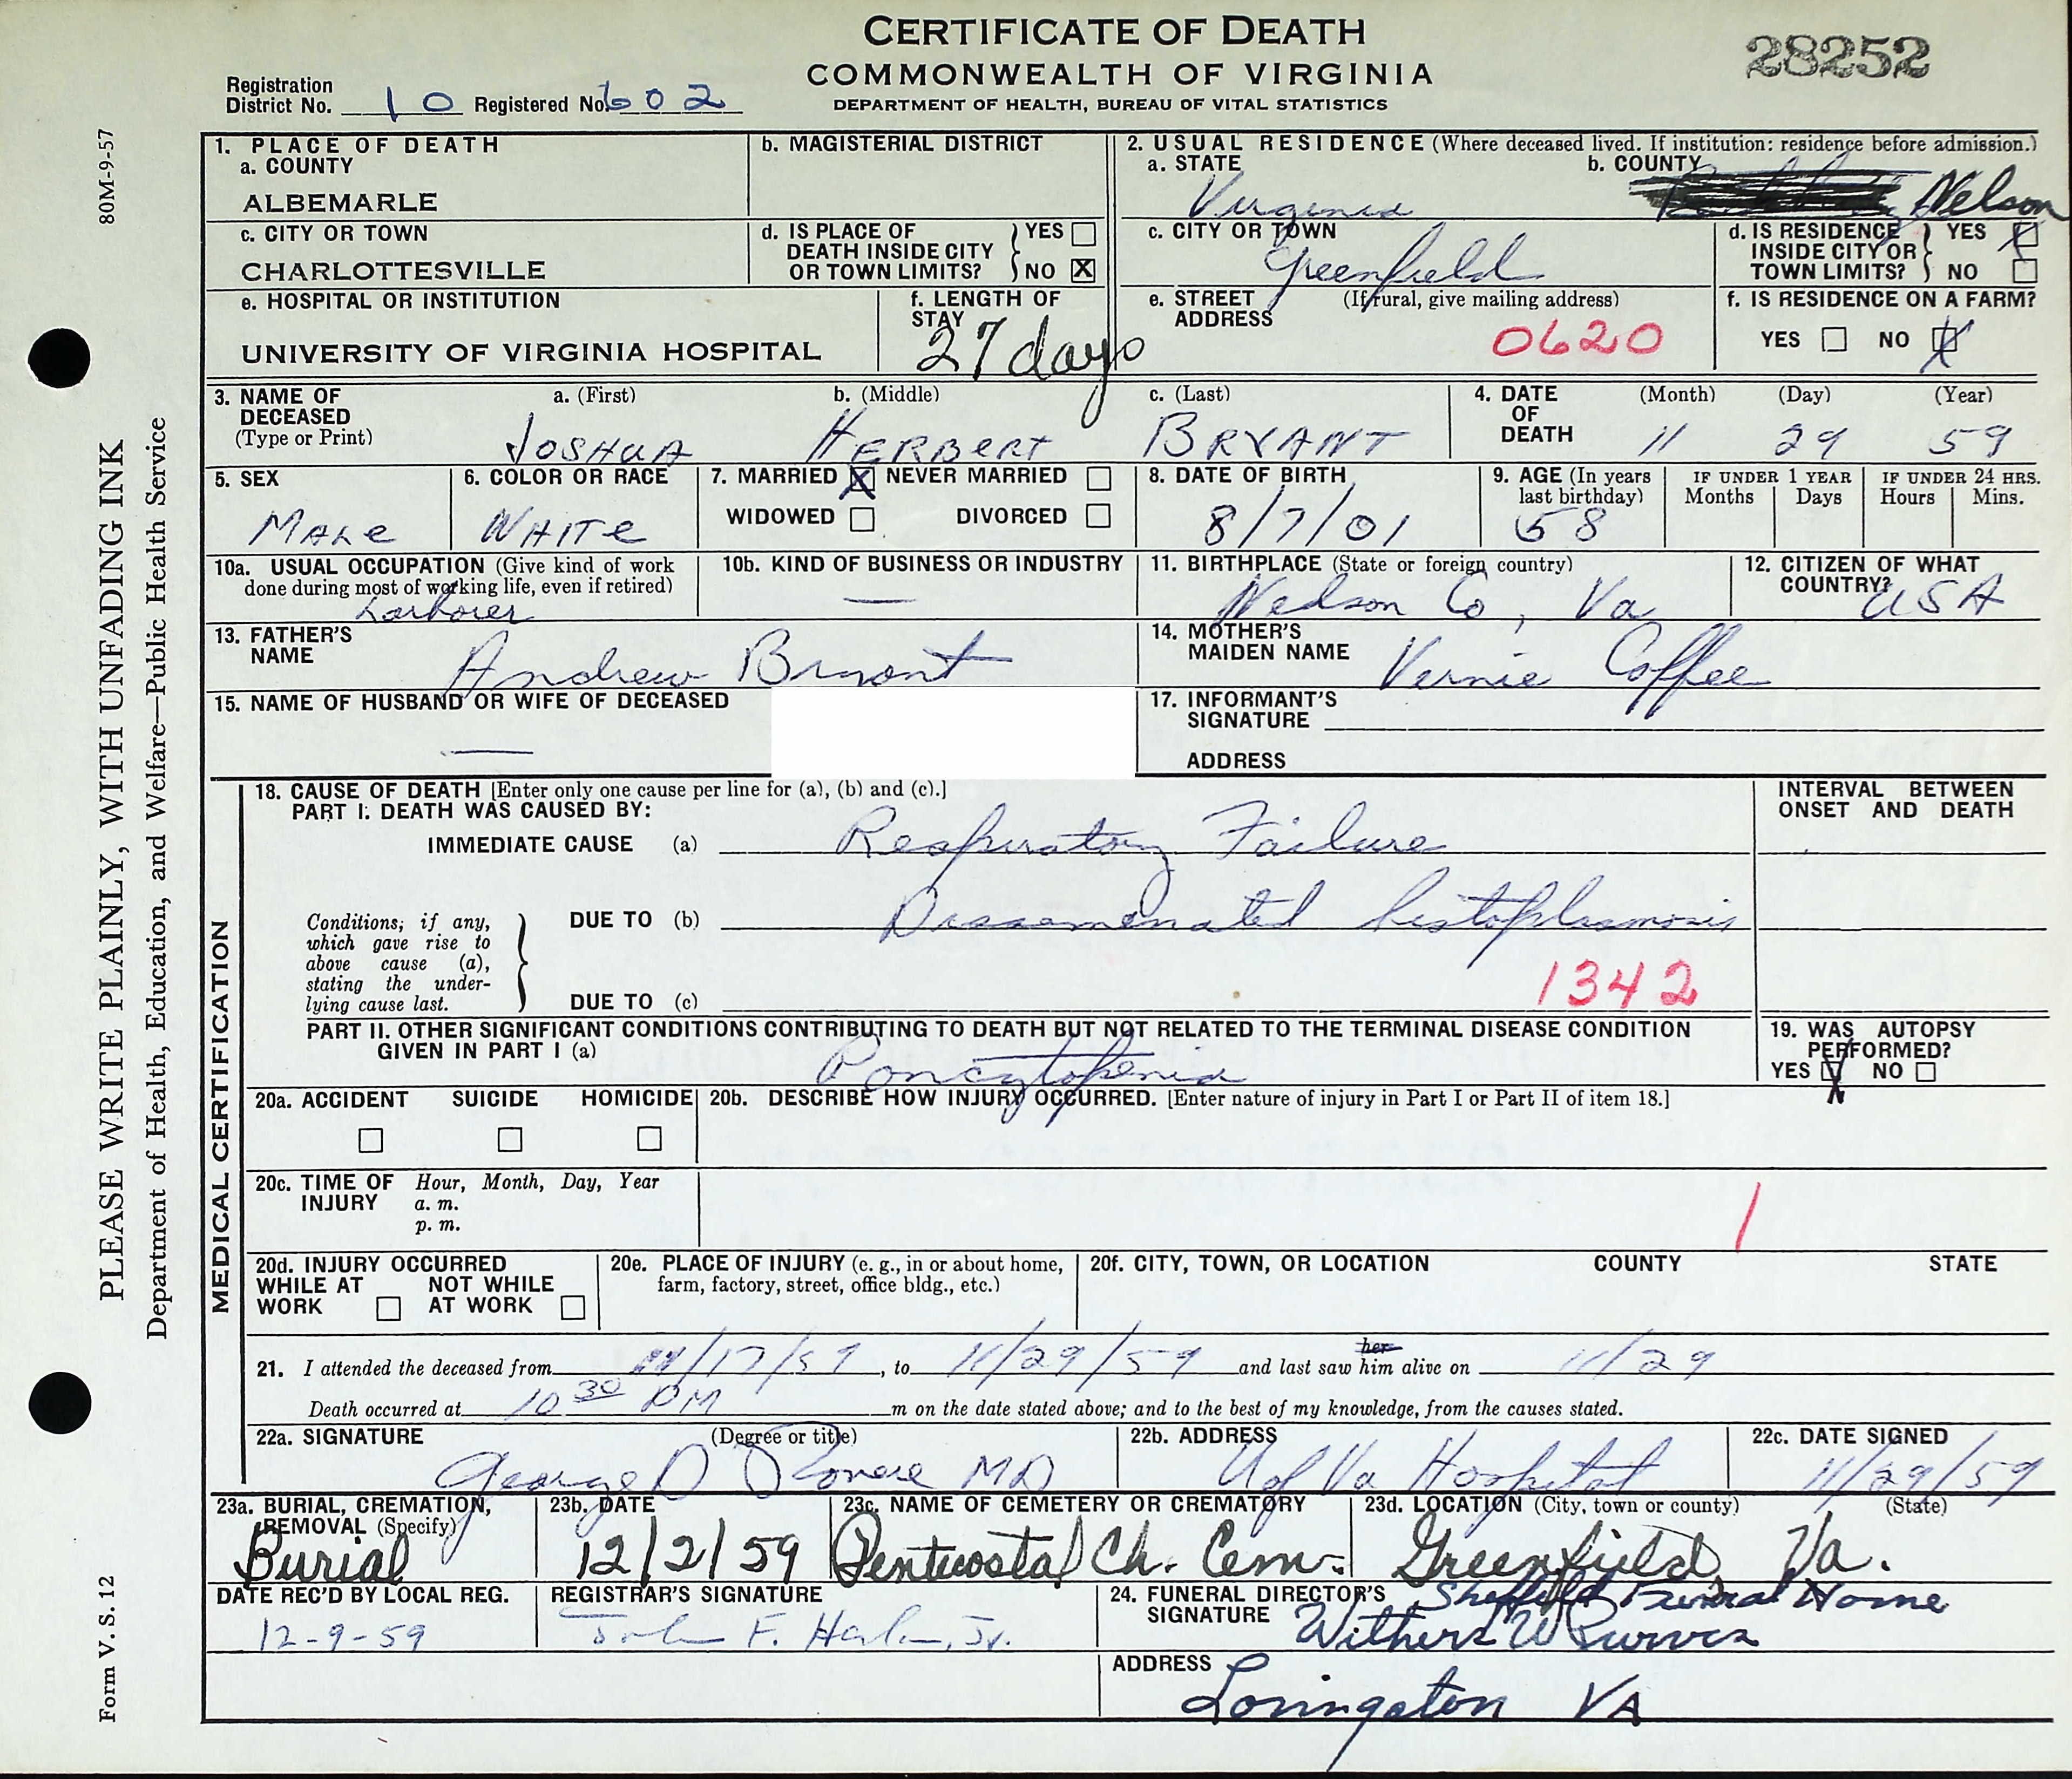 CERTIFICATE OF DEATH
COMMONWEALTH OF VIRGINIA
DEPARTMENT OF HEALTH, BUREAU OF VITAL STATISTICS
28252
Registration District No. 10 Registered No. 602
80M-9-57
PLEASE WRITE PLAINLY, WITH UNFADING INK
Department of Health, Education, and Welfare—Public Health Service
Form V. S. 12
1. PLACE OF DEATH
a. COUNTY
ALBEMARLE
b. MAGISTERIAL DISTRICT
c. CITY OR TOWN
CHARLOTTESVILLE
d. IS PLACE OF DEATH INSIDE CITY OR TOWN LIMITS? YES ☐ NO ☒
e. HOSPITAL OR INSTITUTION
UNIVERSITY OF VIRGINIA HOSPITAL
f. LENGTH OF STAY
27 days
2. USUAL RESIDENCE (Where deceased lived. If institution: residence before admission.)
a. STATE
Virginia
b. COUNTY
Nelson
c. CITY OR TOWN
Greenfield
d. IS RESIDENCE INSIDE CITY OR TOWN LIMITS? YES ☒ NO ☐
e. STREET ADDRESS (If rural, give mailing address)
0620
f. IS RESIDENCE ON A FARM?
YES ☐ NO ☒
3. NAME OF DECEASED (Type or Print)
a. (First) b. (Middle) c. (Last)
JOSHUA HERBERT BRYANT
4. DATE OF DEATH (Month) (Day) (Year)
11 29 59
5. SEX
MALE
6. COLOR OR RACE
WHITE
7. MARRIED ☒ NEVER MARRIED ☐
WIDOWED ☐ DIVORCED ☐
8. DATE OF BIRTH
8/7/01
9. AGE (In years last birthday)
58
IF UNDER 1 YEAR
Months Days
IF UNDER 24 HRS.
Hours Mins.
10a. USUAL OCCUPATION (Give kind of work done during most of working life, even if retired)
10b. KIND OF BUSINESS OR INDUSTRY
—
11. BIRTHPLACE (State or foreign country)
Nelson Co, Va
12. CITIZEN OF WHAT COUNTRY?
USA
13. FATHER'S NAME
Andrew Bryant
14. MOTHER'S MAIDEN NAME
Vernie Coffee
15. NAME OF HUSBAND OR WIFE OF DECEASED
—
17. INFORMANT'S SIGNATURE
ADDRESS
MEDICAL CERTIFICATION
18. CAUSE OF DEATH [Enter only one cause per line for (a), (b) and (c).]
PART I. DEATH WAS CAUSED BY:
IMMEDIATE CAUSE (a) Respiratory Failure
Conditions, if any, which gave rise to above cause (a), stating the underlying cause last.
DUE TO (b) Dissemenated histoplasmosis
DUE TO (c)
1342
INTERVAL BETWEEN ONSET AND DEATH
PART II. OTHER SIGNIFICANT CONDITIONS CONTRIBUTING TO DEATH BUT NOT RELATED TO THE TERMINAL DISEASE CONDITION GIVEN IN PART I (a)
Pancytopenia
19. WAS AUTOPSY PERFORMED?
YES ☒ NO ☐
20a. ACCIDENT SUICIDE HOMICIDE
☐ ☐ ☐
20b. DESCRIBE HOW INJURY OCCURRED. [Enter nature of injury in Part I or Part II of item 18.]
20c. TIME OF INJURY Hour, Month, Day, Year
a. m.
p. m.
1
20d. INJURY OCCURRED
WHILE AT WORK ☐ NOT WHILE AT WORK ☐
20e. PLACE OF INJURY (e. g., in or about home, farm, factory, street, office bldg., etc.)
20f. CITY, TOWN, OR LOCATION COUNTY STATE
21. I attended the deceased from 11/17/59, to 11/29/59 and last saw her him alive on 11/29
Death occurred at 10 30 PM m on the date stated above; and to the best of my knowledge, from the causes stated.
22a. SIGNATURE (Degree or title)
George D MD
22b. ADDRESS
U of Va Hospital
22c. DATE SIGNED
11/29/59
23a. BURIAL, CREMATION, REMOVAL (Specify)
Burial
23b. DATE
12/2/59
23c. NAME OF CEMETERY OR CREMATORY
Pentecostal Ch. Cem.
23d. LOCATION (City, town or county) (State)
Greenfield, Va.
DATE REC'D BY LOCAL REG.
12-9-59
REGISTRAR'S SIGNATURE
F. Jr.
24. FUNERAL DIRECTOR'S SIGNATURE
Sheffield Funeral Home
Withers W Purvis
ADDRESS
Lovingston VA